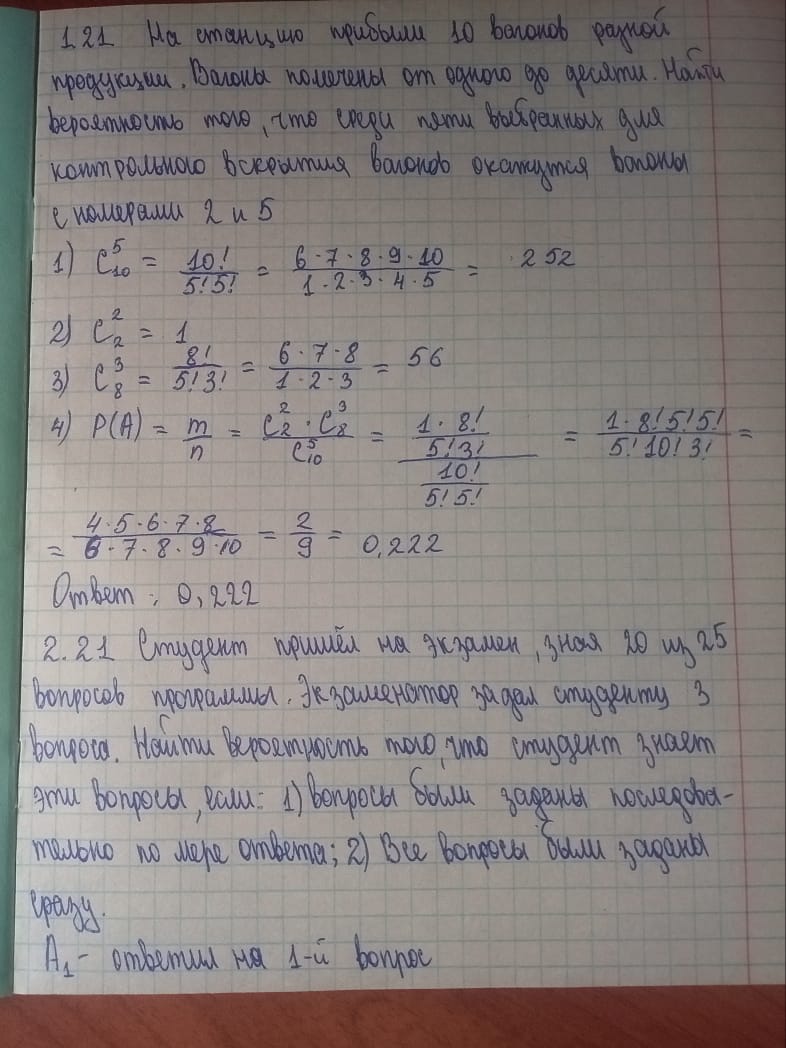 1.21 На станцию прибыли 10 вагонов разной
продукции. Вагоны помечены от одного до десяти. Найти
вероятность того, что среди пяти выбранных для
контрольного вскрытия вагонов окажутся вагоны
с номерами 2 и 5
1) C₁₀⁵ = 10!/(5!5!) = (6·7·8·9·10)/(1·2·3·4·5) = 252
2) C₂² = 1
3) C₈³ = 8!/(5!3!) = (6·7·8)/(1·2·3) = 56
4) P(A) = m/n = (C₂²·C₈³)/C₁₀⁵ = ((1·8!)/(5!3!))/(10!/(5!5!)) = (1·8!5!5!)/(5!10!3!) =
= (4·5·6·7·8)/(6·7·8·9·10) = 2/9 = 0,222
Ответ: 0,222
2.21 Студент пришёл на экзамен, зная 20 из 25
вопросов программы. Экзаменатор задал студенту 3
вопроса. Найти вероятность того, что студент знает
эти вопросы, если: 1) вопросы были заданы последова-
тельно по мере ответа; 2) Все вопросы были заданы
сразу.
A₁ - ответил на 1-й вопрос